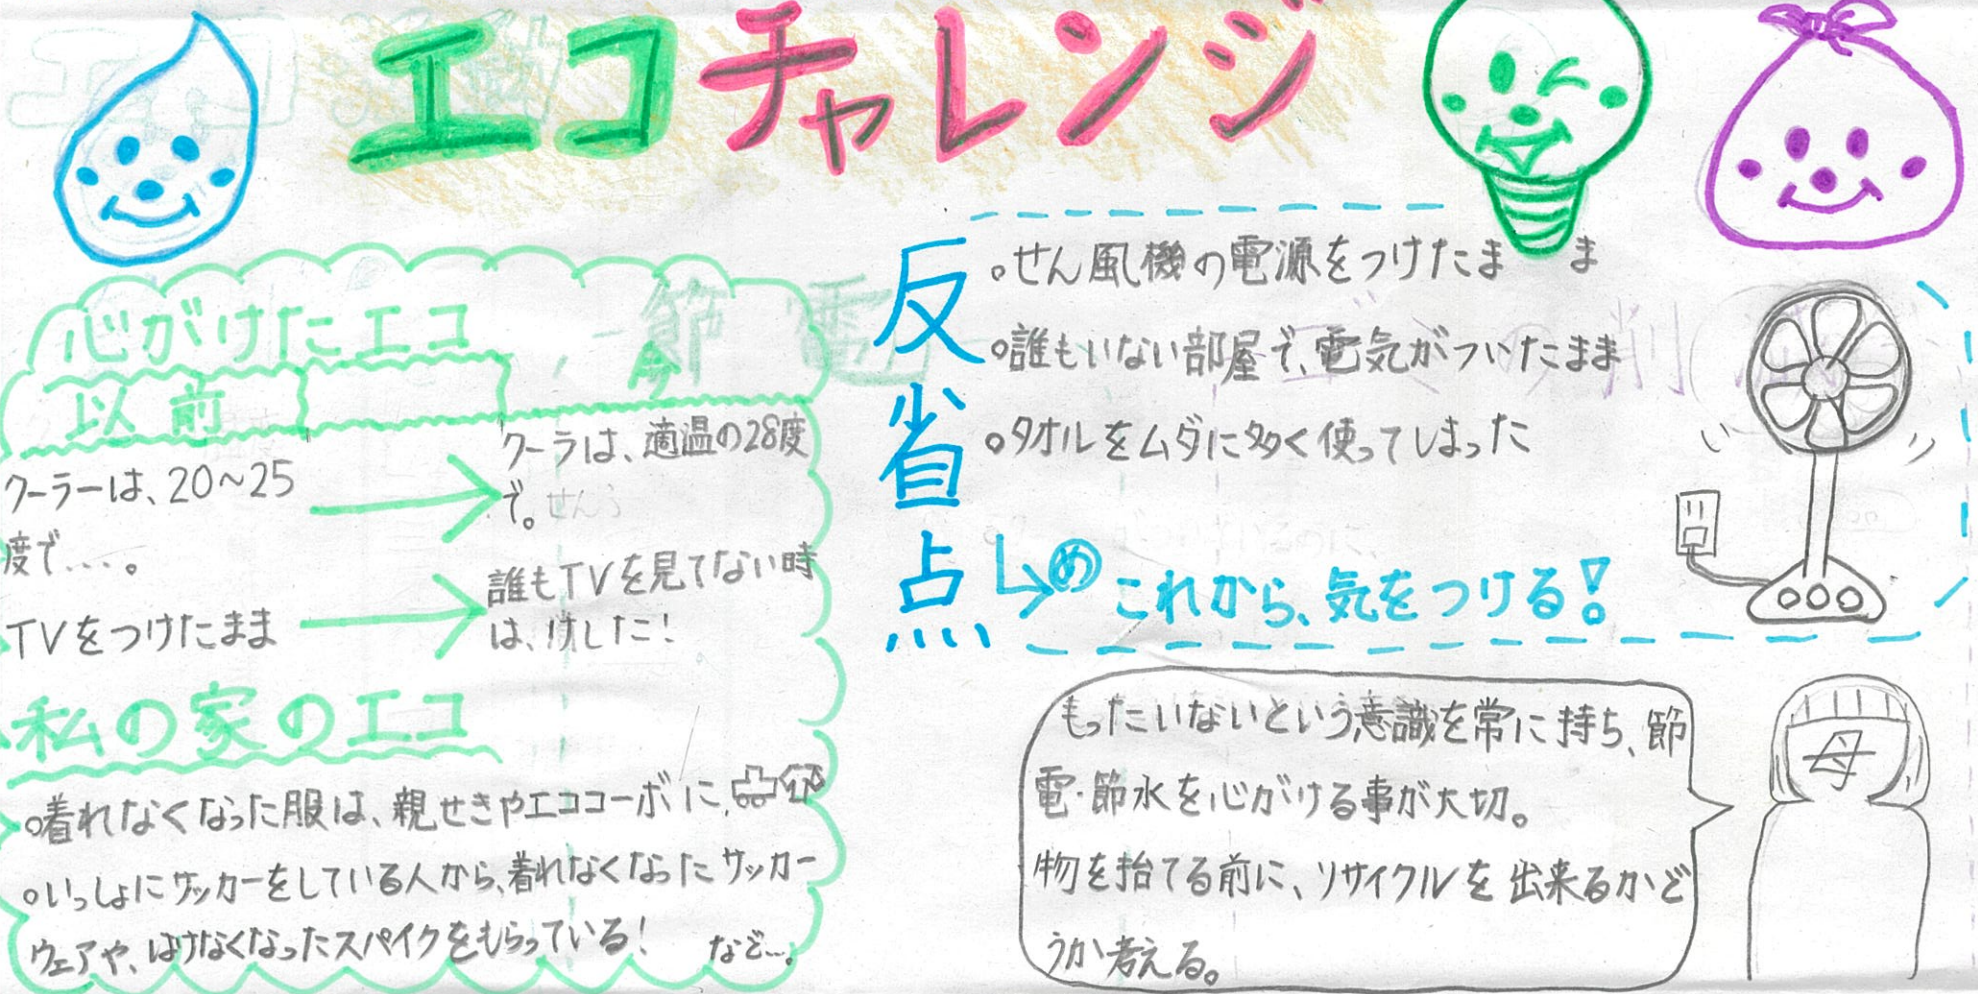 エコチャレンジ
心がけたエコ
以前
今
クーラーは、20～25
度で……。
クーラは、適温の28度
で。
TVをつけたまま
誰もTVを見てない時
は、けした！
私の家のエコ
着れなくなった服は、親せきやエココーボに、
いっしょにサッカーをしている人から、着れなくなったサッカー
ウェアや、はけなくなったスパイクをもらっている！　など…。
反省点
せん風機の電源をつけたまま
誰もいない部屋で、電気がついたまま
タオルをムダに多く使ってしまった
め これから、気をつける！
もったいないという意識を常に持ち、節
電・節水を心がける事が大切。
物を捨てる前に、リサイクルを出来るかど
うか考える。
母